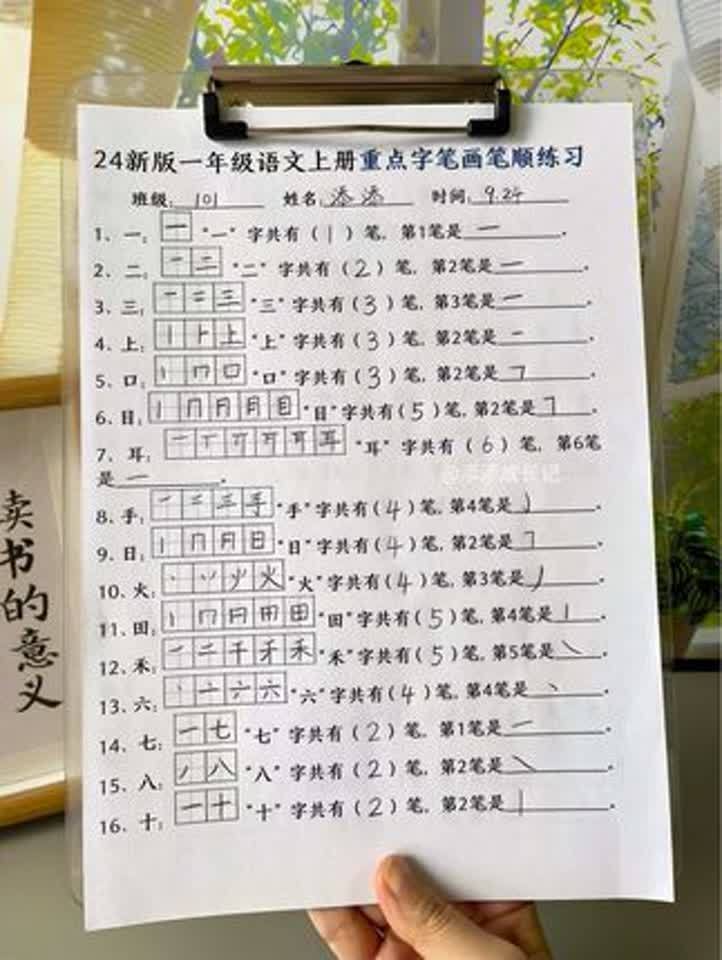 24新版一年级语文上册重点字笔画笔顺练习
班级: 101 姓名: 添添 时间: 9.24
1、一: 一 "一" 字共有 (1) 笔, 第1笔是 一 。
2、二: 一 二 "二" 字共有 (2) 笔, 第2笔是 一 。
3、三: 一 二 三 "三" 字共有 (3) 笔, 第3笔是 一 。
4、上: 丨 ⺊ 上 "上" 字共有 (3) 笔, 第2笔是 一 。
5、口: 丨 冂 口 "口" 字共有 (3) 笔, 第2笔是 ㇕ 。
6、目: 丨 冂 月 月 目 "目" 字共有 (5) 笔, 第2笔是 ㇕ 。
7、耳: 一 丅 丌 耳 "耳" 字共有 (6) 笔, 第6笔
是 一 。
8、手: 一 二 三 手 "手" 字共有 (4) 笔, 第4笔是 亅 。
9、日: 丨 冂 月 日 "日" 字共有 (4) 笔, 第2笔是 ㇕ 。
10、火: 丶 丷 火 "火" 字共有 (4) 笔, 第3笔是 丿 。
11、田: 丨 冂 月 用 田 "田" 字共有 (5) 笔, 第4笔是 丨 。
12、禾: 一 二 千 禾 "禾" 字共有 (5) 笔, 第5笔是 ㇏ 。
13、六: 丶 亠 六 六 "六" 字共有 (4) 笔, 第4笔是 丶 。
14、七: 一 七 "七" 字共有 (2) 笔, 第1笔是 一 。
15、八: 丿 八 "八" 字共有 (2) 笔, 第2笔是 ㇏ 。
16、十: 一 十 "十" 字共有 (2) 笔, 第2笔是 丨 。
书
的
意
义